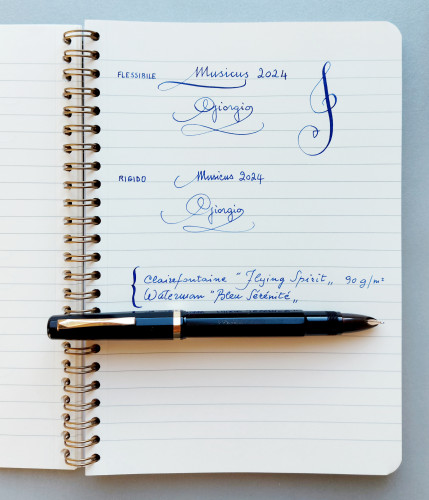 FLESSIBILE Musicus 2024
Giorgio
RIGIDO Musicus 2024
Giorgio
Clairefontaine "Flying Spirit„ 90 g/m²
Waterman "Bleu Sérénité„